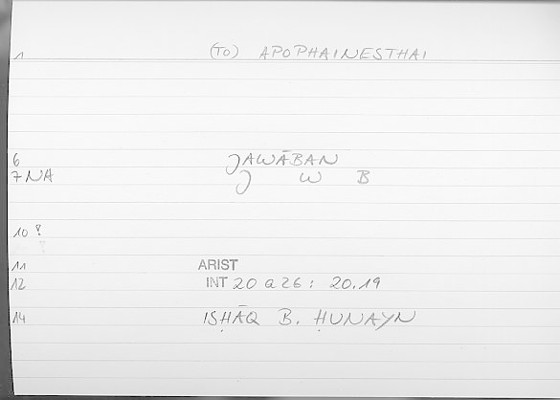 1 (TO) APOPHAINESTHAI
6 JAWĀBAN
7 NA J W B
10 ?
11 ARIST
12 INT 20 a 26 : 20.19
14 ISḤĀQ B. ḤUNAYN